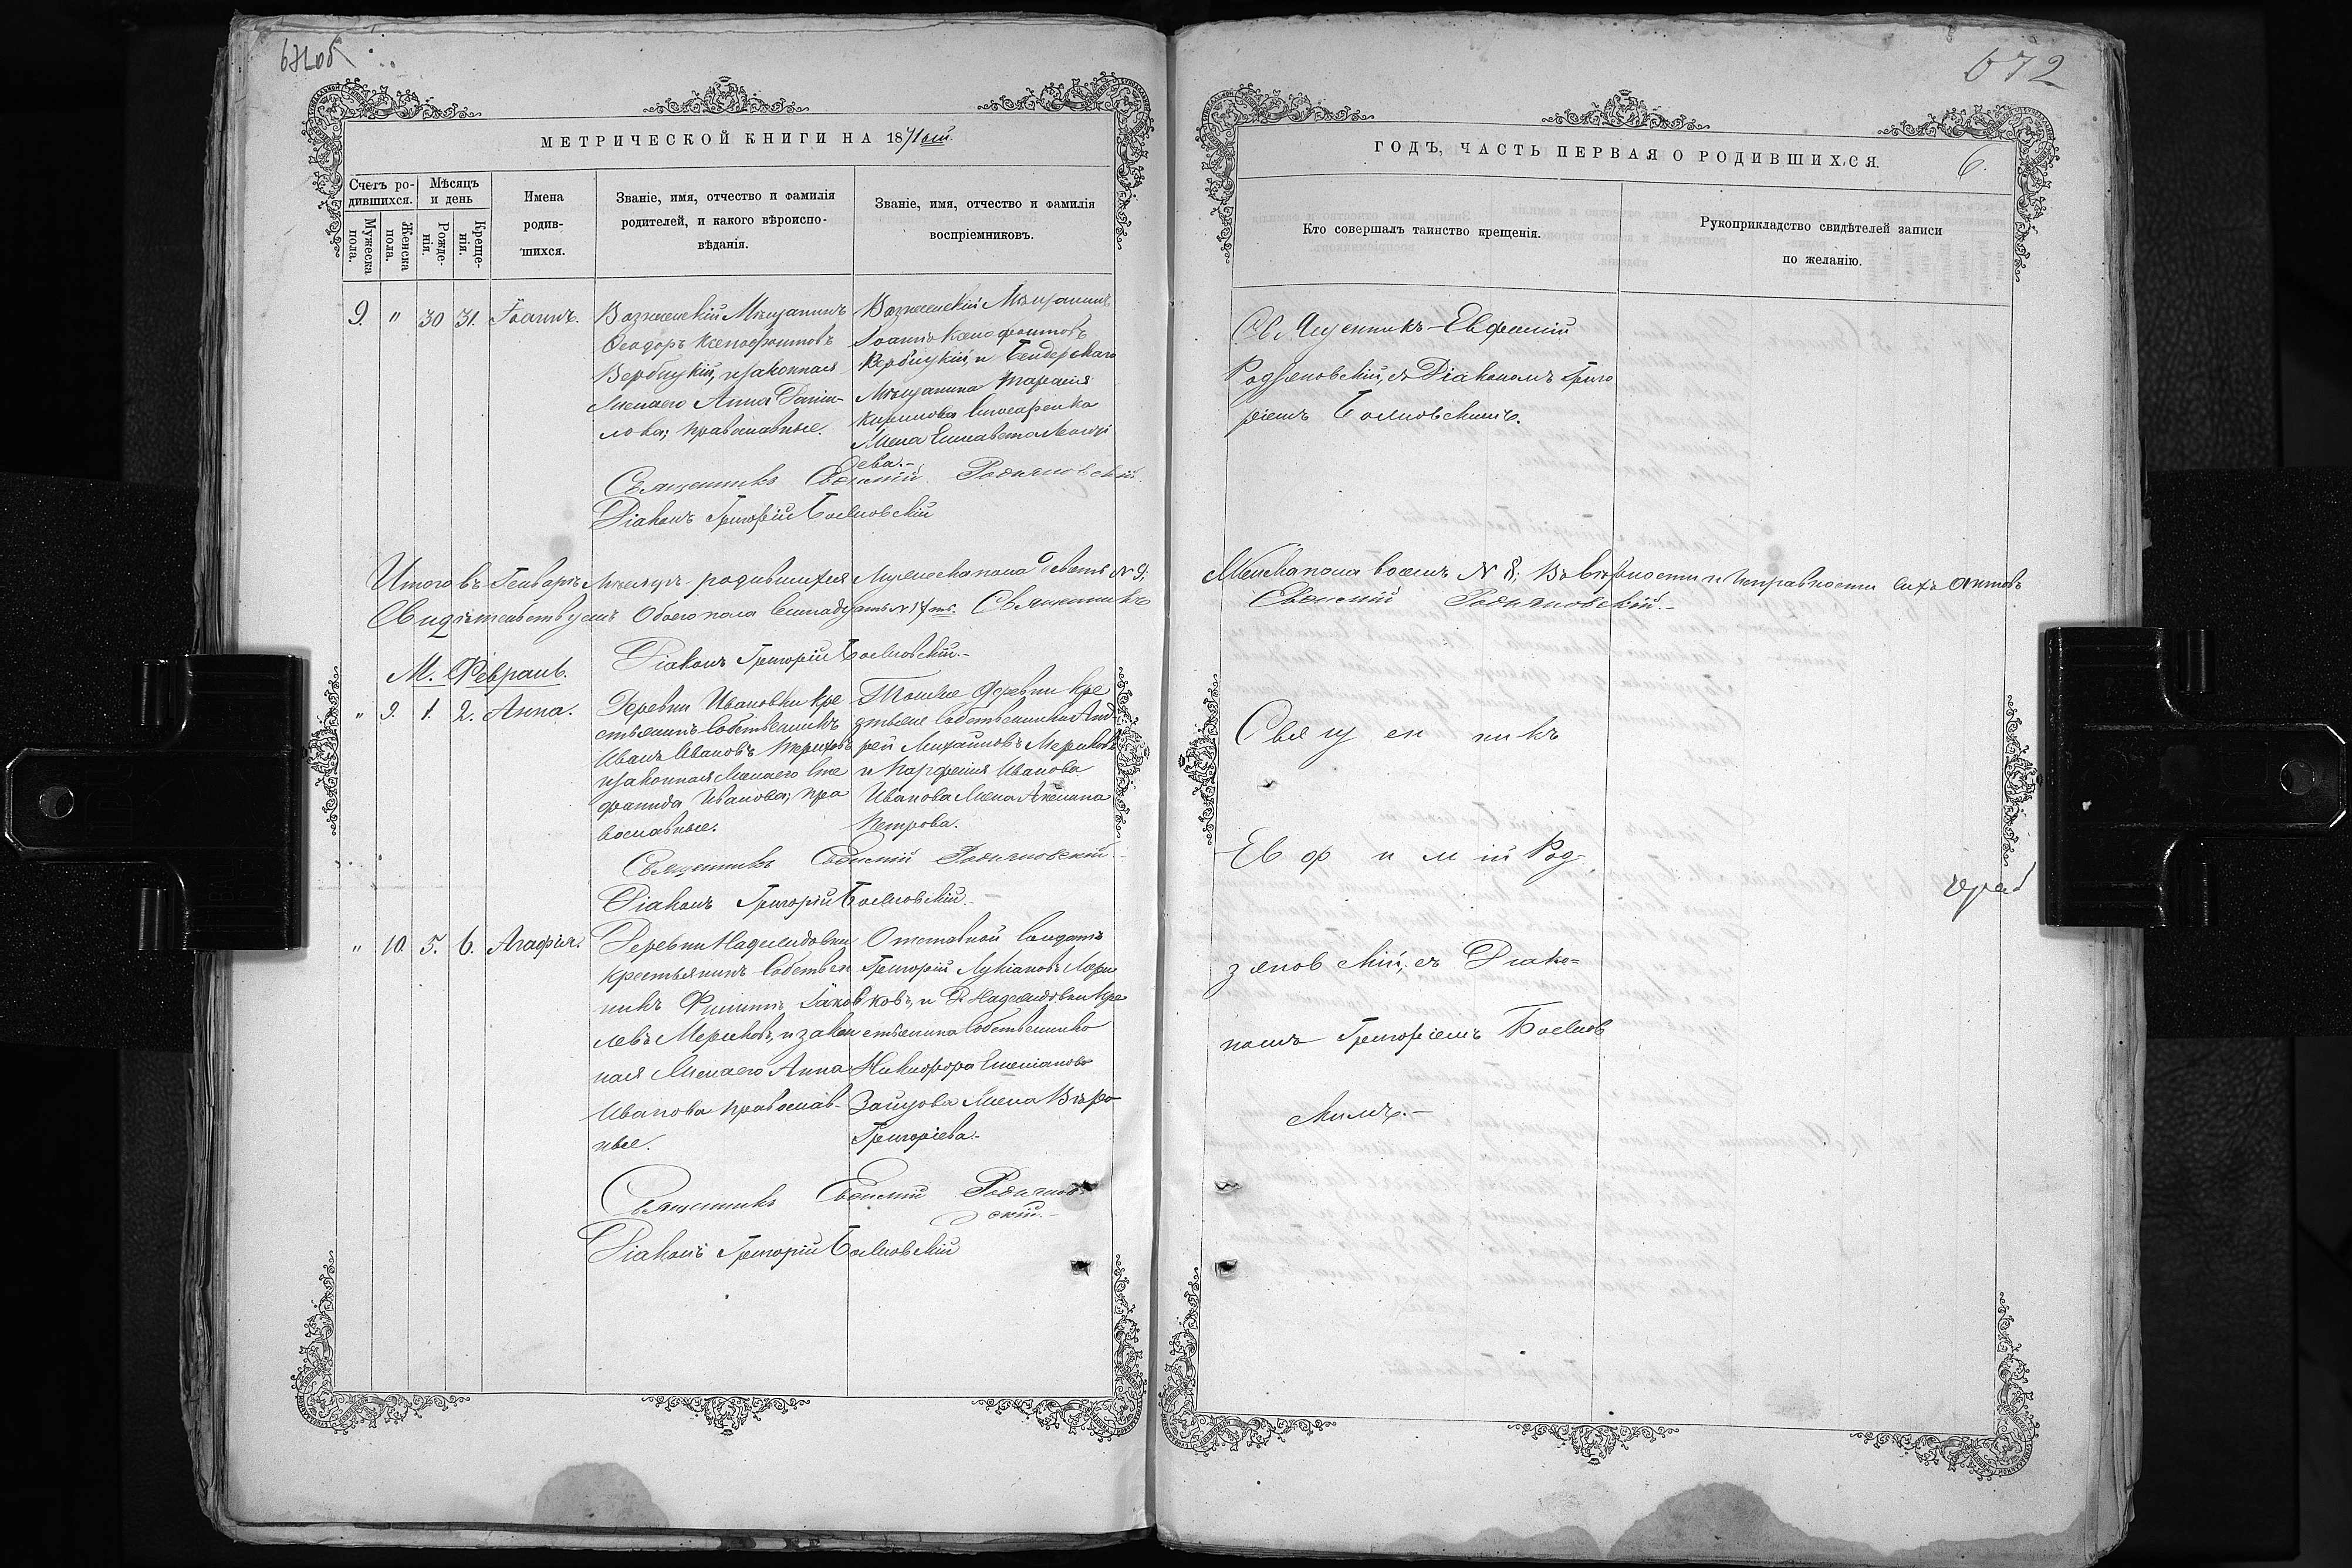 671 об
МЕТРИЧЕСКОЙ КНИГИ НА 1871 ый.
Счетъ ро-
дившихся.
Мѣсяцъ
и день
Мужеска
пола.
Женска
пола.
Рожде-
нія.
Креще-
нія.
Имена
родив-
шихся.
Званіе, имя, отчество и фамилія
родителей, и какого вѣроиспо-
вѣданія.
Званіе, имя, отчество и фамилія
воспріемниковъ.
9. " 30 31. Іоаннъ.
Вознесенскій Мѣщанинъ
Ѳеодоръ Ксенофонтовъ
Вербицкій, и законная
Жена его Анна Дани-
лова; православные.
Вознесенскій Мѣщанинъ
Іоаннъ Ксенофонтовъ
Вербицкій, и Бендерскаго
Мѣщанина Тарасія
Кирилова
Жена Елисавета
ева.-
Священникъ Евфимій Родзяновскій.
Діаконъ Григорій Боелновскій
Итого въ Генварѣ Мѣсяцѣ родившихся Мужеска пола девять № 9;
Свидѣтельствуемъ Обоего пола Семнадцать № 17ть. Священникъ
Діаконъ Григорій Боелновскій.-
М. Февраль.
" 9. 1. 2. Анна.
Деревни Ивановки Кре
стьянинъ Собственникъ
Иванъ Ивановъ
и законная Жена его Сте
фанида Иванова; Пра
вославные.
Тойже Деревни Кре
стьяне Собственники Анд
рей Михайловъ Мериковъ
и Парфенія Иванова
Иванова Жена Акелина
Петрова.
Священникъ Евфимій Родзяновскій
Діаконъ Григорій Боелновскій.-
" 10. 5. 6. Агафія.
Деревни Надеждовки
Крестьянинъ Собствен
никъ Филиппъ Іаков
левъ Мериковъ, и закон
ная Жена его Анна
Иванова православ-
ные.
Отставной Солдатъ
Григорій Лукіановъ Мери
ковъ, и Д. Надеждовки Кре
стьянина Собственника
Никифора Степанова
Зайцова Жена Вѣра
Григоріева.-
Священникъ Евфимій Родзянов-
скій.-
Діаконъ Григорій Боелновскій
672
ГОДЪ, ЧАСТЬ ПЕРВАЯ О РОДИВШИХСЯ.
6.
Кто совершалъ таинство крещенія.
Рукоприкладство свидѣтелей записи
по желанію.
Священникъ Евфимій
Родзяновскій, съ Діакономъ Григо
ріемъ Боелновскимъ.
Женска пола восемь № 8; Въ вѣрности и Исправности Сихъ Актовъ
Евфимій Родзяновскій.-
Свя щ ен никъ
Ев ф и м ій Род-
зянов скій, съ Діако-
номъ Григоріемъ Боелнов
скимъ.-